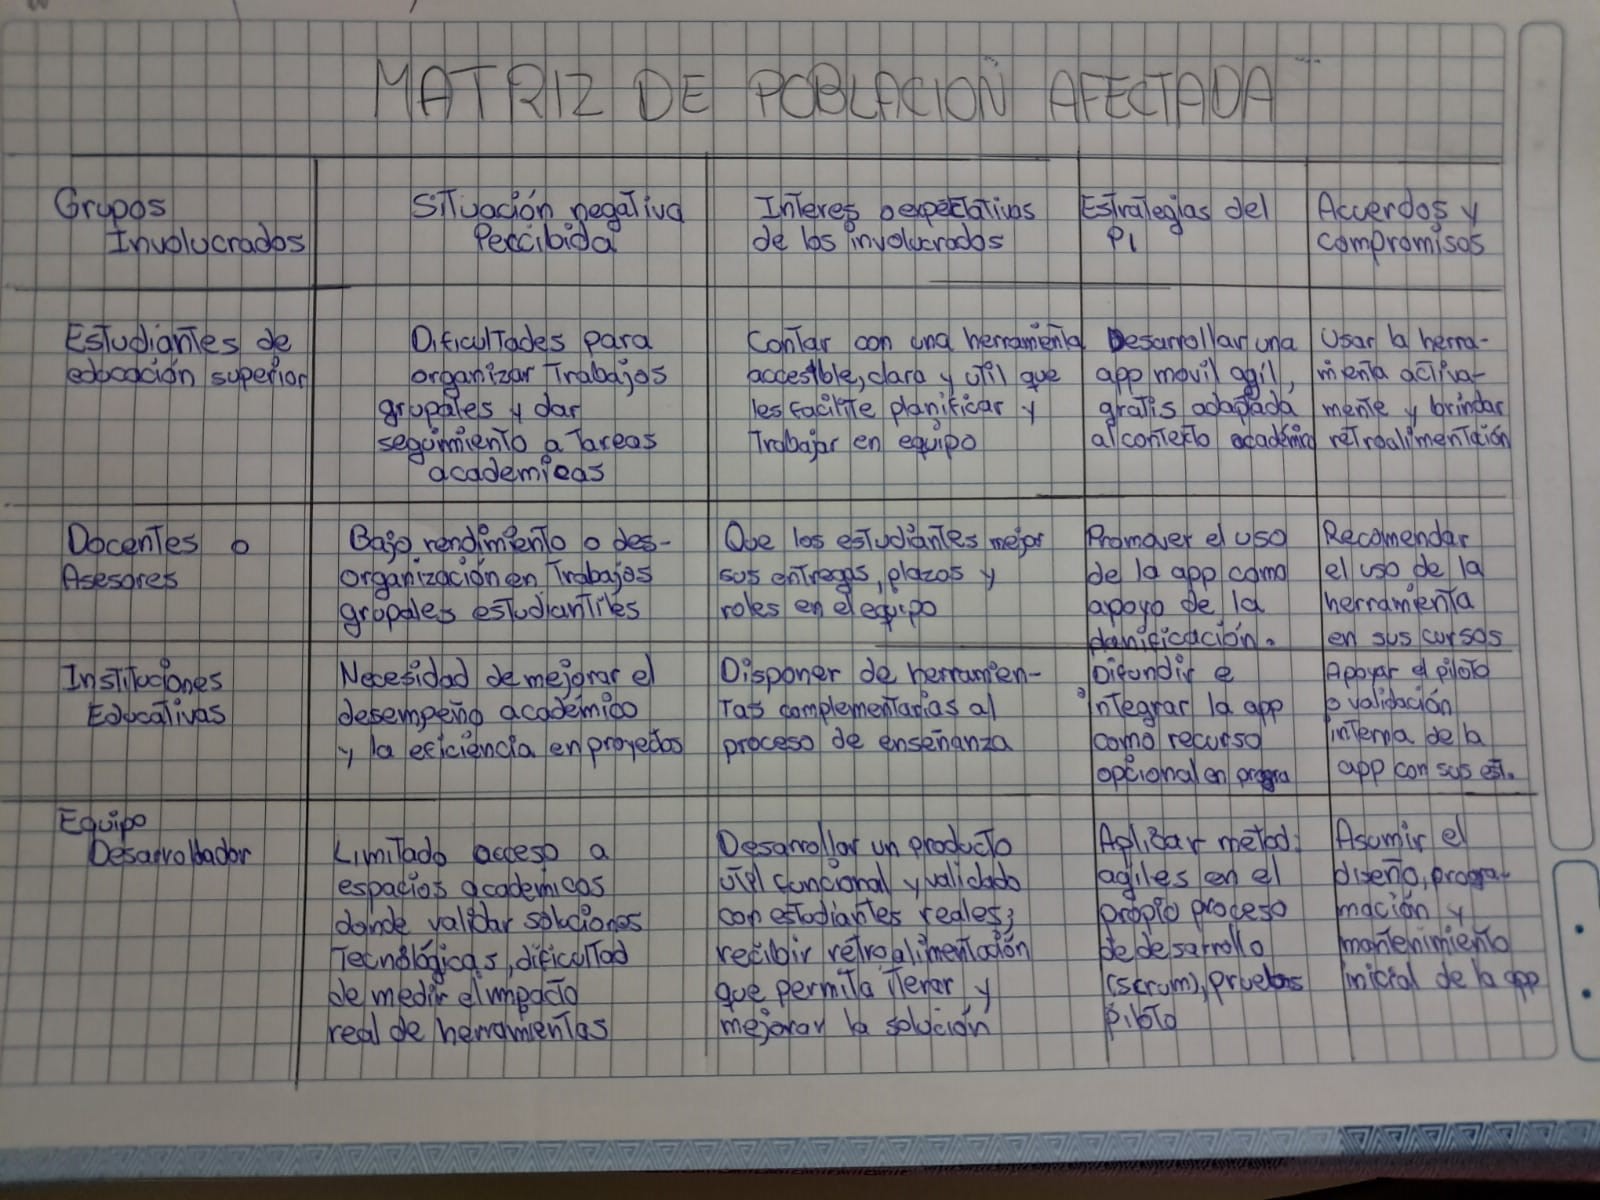 MATRIZ DE POBLACION AFECTADA
Grupos
Involucrados
Situación negativa
Percibida
Interes o expectativas
de los involucrados
Estrategias del
PI
Acuerdos y
compromisos
Estudiantes de
educación superior
Dificultades para
organizar Trabajos
grupales y dar
seguimiento a Tareas
academicas
Contar con una herramienta
accesible, clara y util que
les facilite planificar y
Trabajar en equipo
Desarrollar una
app movil agil,
gratis adaptada
al contexto académico
Usar la herra-
mienta activa-
mente y brindar
retroalimentación
Docentes o
Asesores
Bajo rendimiento o des-
organización en Trabajos
grupales estudiantiles
Que los estudiantes mejor
sus entregas, plazos y
roles en el equipo
Promover el uso
de la app como
apoyo de la
planificación.
Recomendar
el uso de la
herramienta
en sus cursos
Instituciones
Educativas
Necesidad de mejorar el
desempeño académico
y la eficiencia en proyectos
Disponer de herramien-
tas complementarias al
proceso de enseñanza
Difundir e
integrar la app
como recurso
opcional en progra
Apoyar el piloto
o validación
interna de la
app con sus est.
Equipo
Desarrollador
Limitado acceso a
espacios academicos
donde validar soluciones
Tecnológicas, dificultad
de medir el impacto
real de herramientas
Desarrollar un producto
útil funcional y validado
con estudiantes reales;
recibir retroalimentación
que permita iterar y
mejorar la solución
Aplicar metod.
agiles en el
propio proceso
de desarrollo
(scrum), pruebas
piloto
Asumir el
diseño, progra-
mación y
mantenimiento
inicial de la app